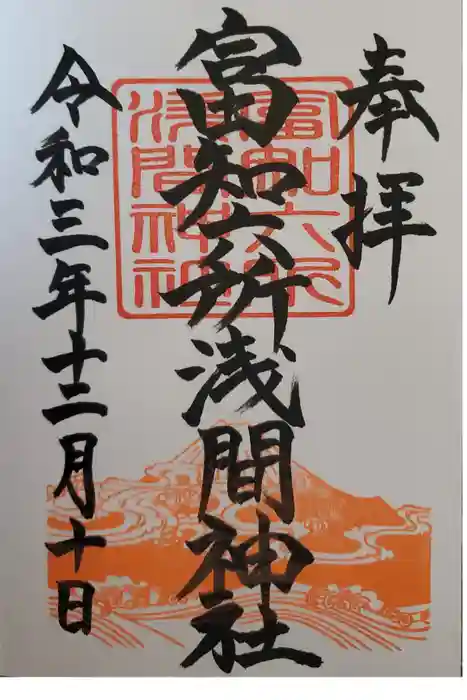 奉拝
富知六所浅間神社
令和三年十二月十日
富知六所
浅間神社